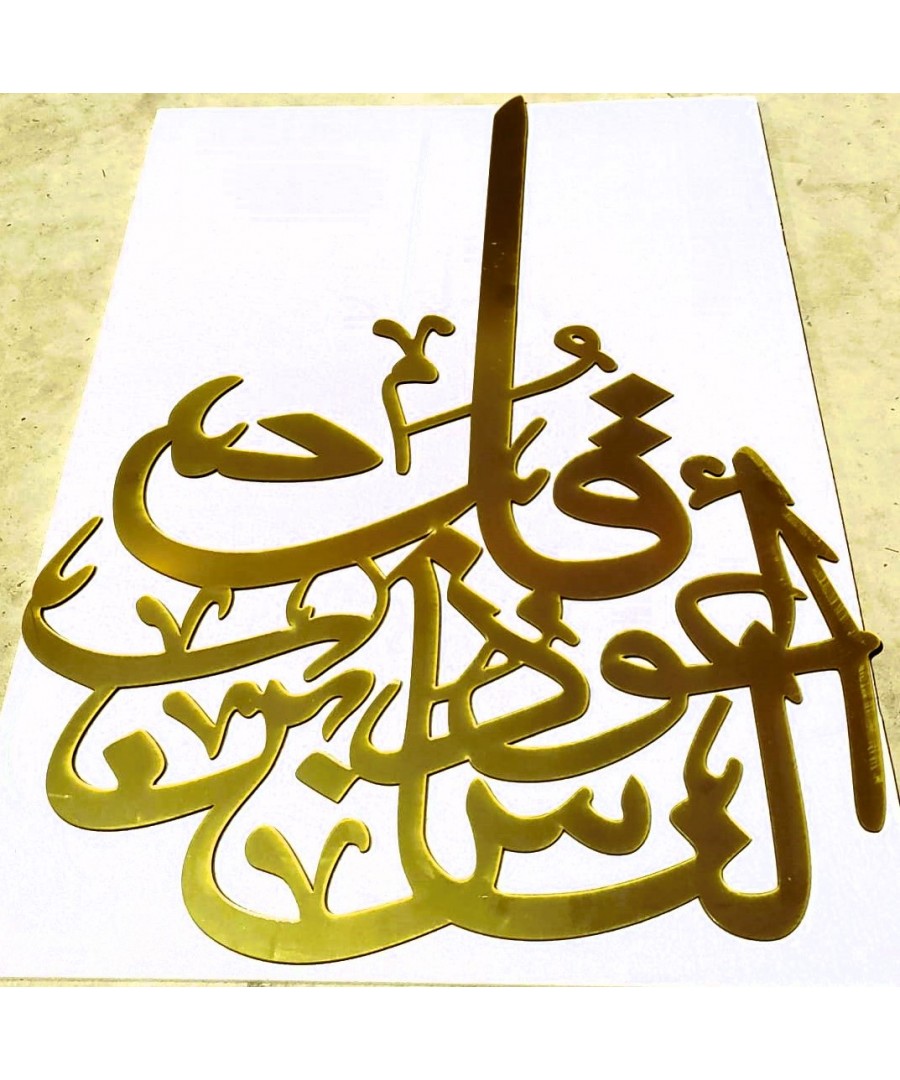 قل
أعوذ برب
الناس